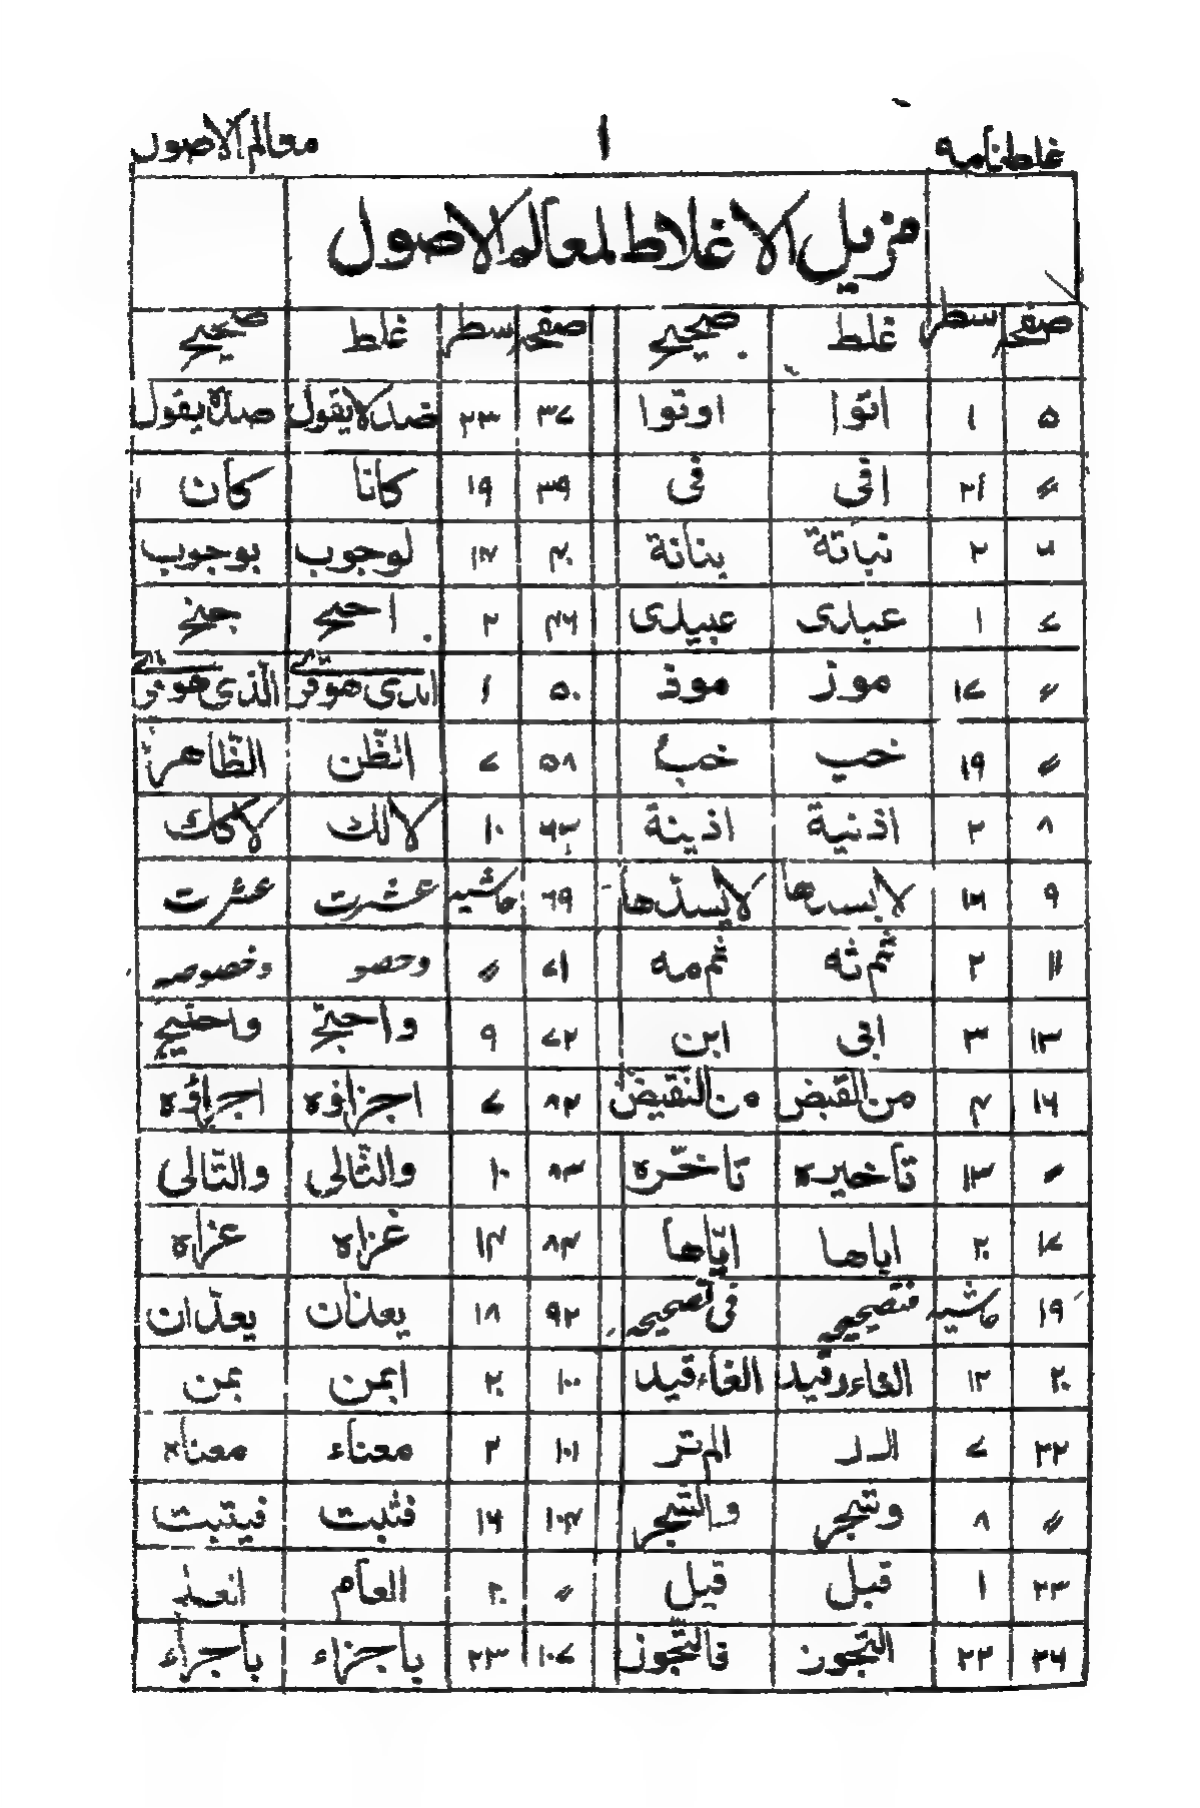 غلطنامه ۱ معالم الاصول
مزیل الاغلاط لمعالم الاصول
صفحه سطر غلط صحیح صفحه سطر غلط صحیح
۵ ۱ اتوا اوتوا ۳۷ ۲۳ ضد لا یقول صدّه یقول
〃 ۲۱ افی فی ۳۹ ۱۹ کانا کان
۶ ۲ نباتة بنانة ۴۰ ۱۷ لوجوب بوجوب
۷ ۱ عبلدی عبیدی ۴۶ ۲ احج
〃 ۱۷ موز موذ ۵۰ ۱ الذی هو فی الّذی هو فی
〃 ۱۹ خب ۵۸ ۷ الظّن الظّاهر
۸ ۲ اذنیة اذینة ۶۳ ۱۰ لا لك لا کلك
۹ ۱۶ لا بسدها لا یسدّها ۶۹ حاشیه عشرت عثرت
۱۱ ۲ ثم ثه ثم مه ۷۱ 〃 وخصو وخصوصه
۱۳ ۳ ابی ابن ۷۲ ۹ واحجّ واحتج
۱۶ ۴ من القبض من النّقیض ۸۲ ۷ اجزاؤه اجراؤه
〃 ۱۳ تأخیره تأخّره ۸۳ ۱۰ والثّالی والتّالی
۱۷ ۲۰ اباها ایّاها ۸۴ ۱۴ غزاه عزاه
۱۹ حاشیه فتصحیحه فی تصحیحه ۹۲ ۱۸ یعذان یعدّان
۲۰ ۱۲ الغاء وقید الغاء قید ۱۰۰ ۲۰ ایمن بمن
۲۲ ۷ الم تر ۱۰۱ ۲ معناء معناه
〃 ۸ وتتجر والتتجر ۱۰۴ ۱۶ فثبت فیثبت
۲۳ ۱ قبل قیل 〃 ۲۰ العام
۲۶ ۲۲ التجوز فالتّجوز ۱۰۷ ۲۳ باجزاء باجراء